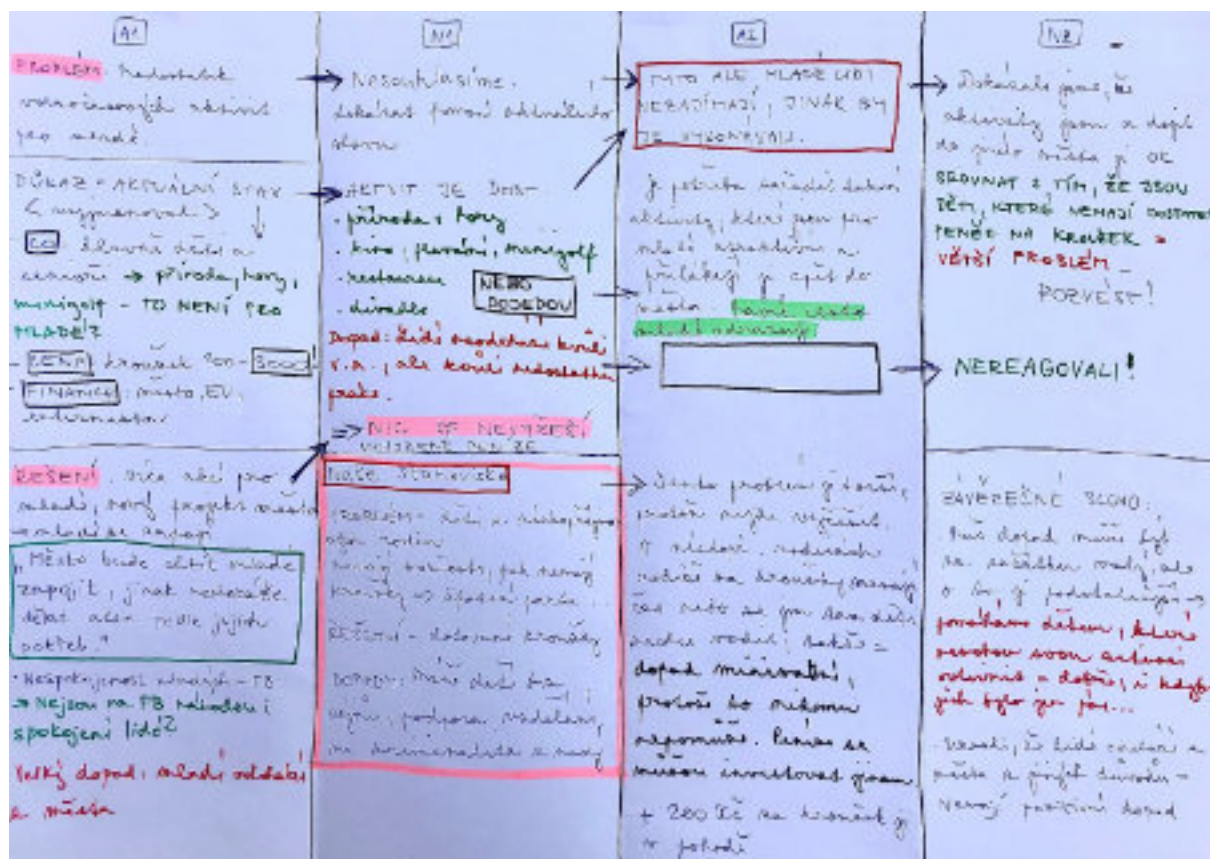 A1
PROBLÉM: Nedostatek
volnočasových aktivit
pro mladé.
DŮKAZ - AKTUÁLNÍ STAV
< vyjmenovat >
CO hlavně děti a
senioři → příroda, hory,
minigolf - TO NENÍ PRO
MLADÉ?
- CENA kroužek 200 - 3000!
- FINANCE: město, EU,
ŘEŠENÍ: více akcí pro
mladé, nový projekt města
mladí se zapojí
„Město bude chtít mladé
zapojit, jinak nedokáže
dělat akce podle jejich
potřeb."
- Nespokojenost mladých - FB
→ Nejsou na FB náhodou i
spokojení lidé?
Velký dopad: mladí odchází
z města
N1
Nesouhlasíme.
dokázat pomocí aktuálního
stavu
AKTIVIT JE DOST:
• příroda + hory
• kino, plavání, minigolf
• restaurace
• divadlo
NEBO
DOJEDOU
Dopad: Lidi neodchází kvůli
v.a., ale kvůli nedostatku
práce.
=> NIC SE NEVYŘEŠÍ
VYHOZENÉ PENÍZE
Naše stanovisko
PROBLÉM - děti z
rodin
nemají
kroužky => špatná parta...
ŘEŠENÍ - dotované kroužky
DOPADY: Míň dětí na
ulici, podpora vzdělání,
A2
TYTO ALE MLADÉ LIDI
NEZAJÍMAJÍ, JINAK BY
JE VYKONÁVALI.
Je potřeba zařídit takové
aktivity, které jsou pro
mladé atraktivní a
přilákají je zpět do
města.
Tento problém je horší,
protože nejde vyřešit.
rodinách
rodiče na kroužky nemají
čas nebo se jen
dopad minimální,
protože to nikomu
nepomůže. Peníze se
můžou investovat jinam
+ 200 Kč za kroužek je
v pohodě
N2
Dokázali jsme, že
aktivity jsou a dojet
do jiného města je OK
SROVNAT S TÍM, ŽE JSOU
DĚTI, KTERÉ NEMAJÍ DOSTATEK
PENĚZ NA KROUŽEK =
VĚTŠÍ PROBLÉM -
POZVÉST!
NEREAGOVALI!
ZÁVĚREČNÉ SLOVO:
- Náš dopad může být
na začátku malý, ale
o to je podstatnější →
pomáháme dětem, které
i kdyby
jich bylo jen pár...
- Uvedli, že lidé odchází z
města z jiných důvodů -
Nemají pozitivní dopad